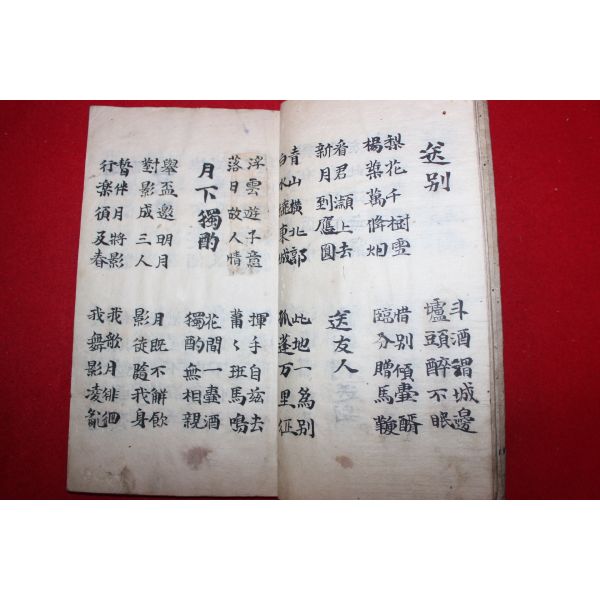 送別
斗酒渭城邊
壚頭醉不眠
梨花千樹雪
楊葉萬條烟
惜別傾壺醑
臨分贈馬鞭
看君潁上去
新月到應圓
送友人
青山橫北郭
白水繞東城
此地一為別
孤蓬万里征
浮雲遊子意
落日故人情
揮手自茲去
蕭〻班馬鳴
月下獨酌
花間一壺酒
獨酌無相親
舉盃邀明月
對影成三人
月既不解飲
影徒隨我身
暫伴月將影
行樂須及春
我歌月徘徊
我舞影凌亂